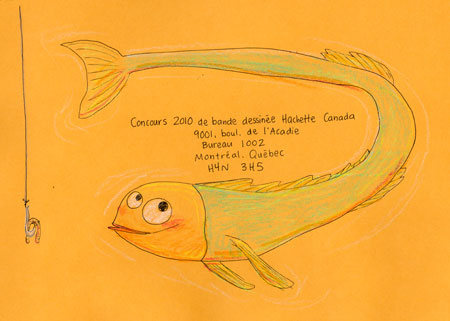 Concours 2010 de bande dessinée Hachette Canada
9001, boul. de l'Acadie
Bureau 1002
Montréal, Québec
H4N 3H5